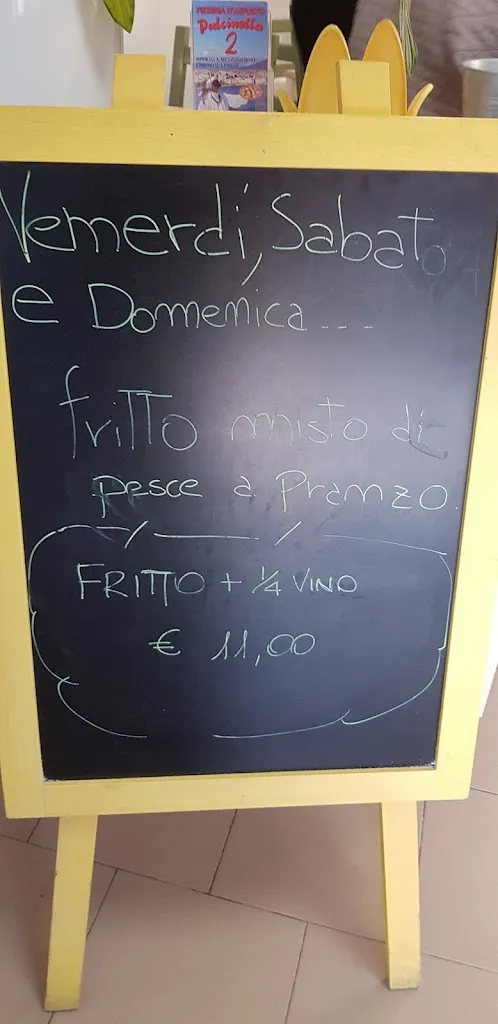 PIZZERIA D'ASPORTO
Pulcinella
2
Venerdì, Sabato
e Domenica...
fritto misto di
pesce a Pranzo.
FRITTO + 1/4 VINO
€ 11,00